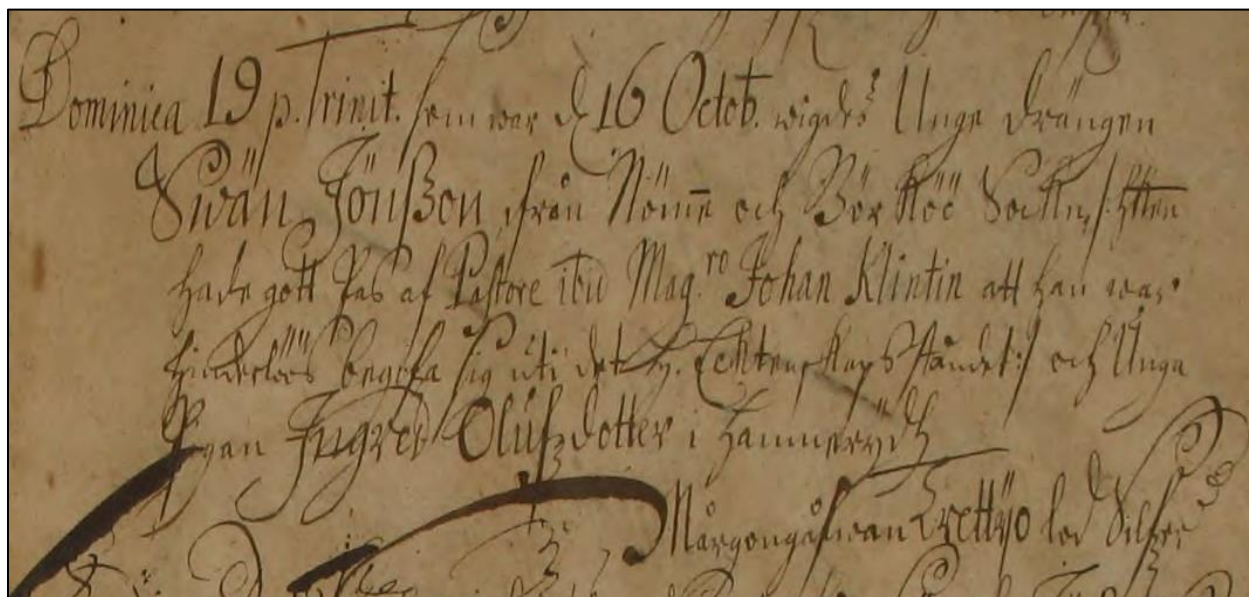 Dominica 19 p. Trinit. som war d. 16 Octob. wigdes Unge drängen
Swän Jönßon, från Nömme och Börköö Sockn,
hade gott Pas af Pastore ibid Mag.ro Johan Klintin att han war
hinderlöös begifa sig uti det H. Ecktenskaps ståndet :/ och Unga
Pigan Ingred Olufzdotter i Hammerydh
Mårgongåfwan Trettijo lod Silfver